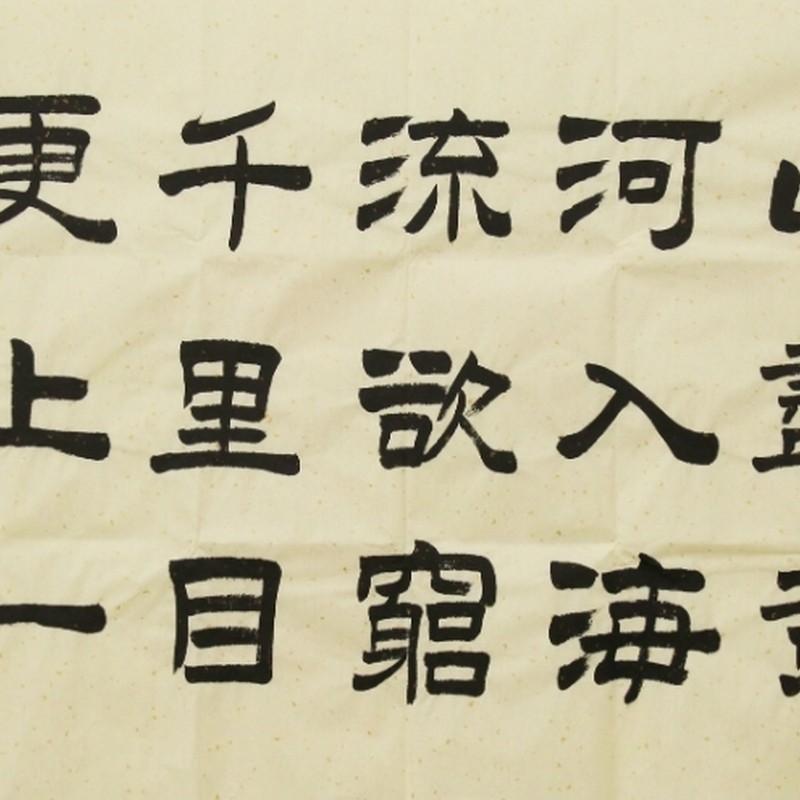 河入海
流欲窮
千里目
更上一